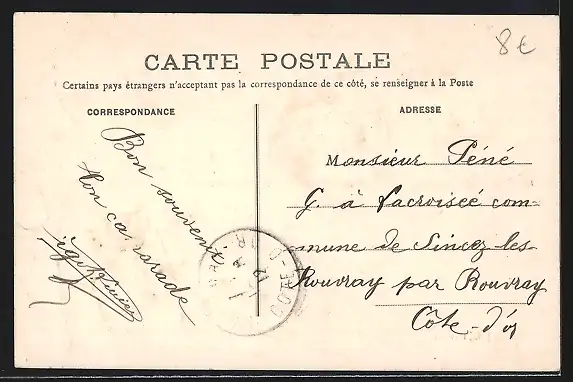 8€
CARTE POSTALE
Certains pays étrangers n'acceptant pas la correspondance de ce côté, se renseigner à la Poste
CORRESPONDANCE
ADRESSE
Bon souvenir
ton camarade
Monsieur Péné
G. à Lacroisée com=
mune de Sincey les
Rouvray par Rouvray
Côte-d'or
CÔTE-D'OR